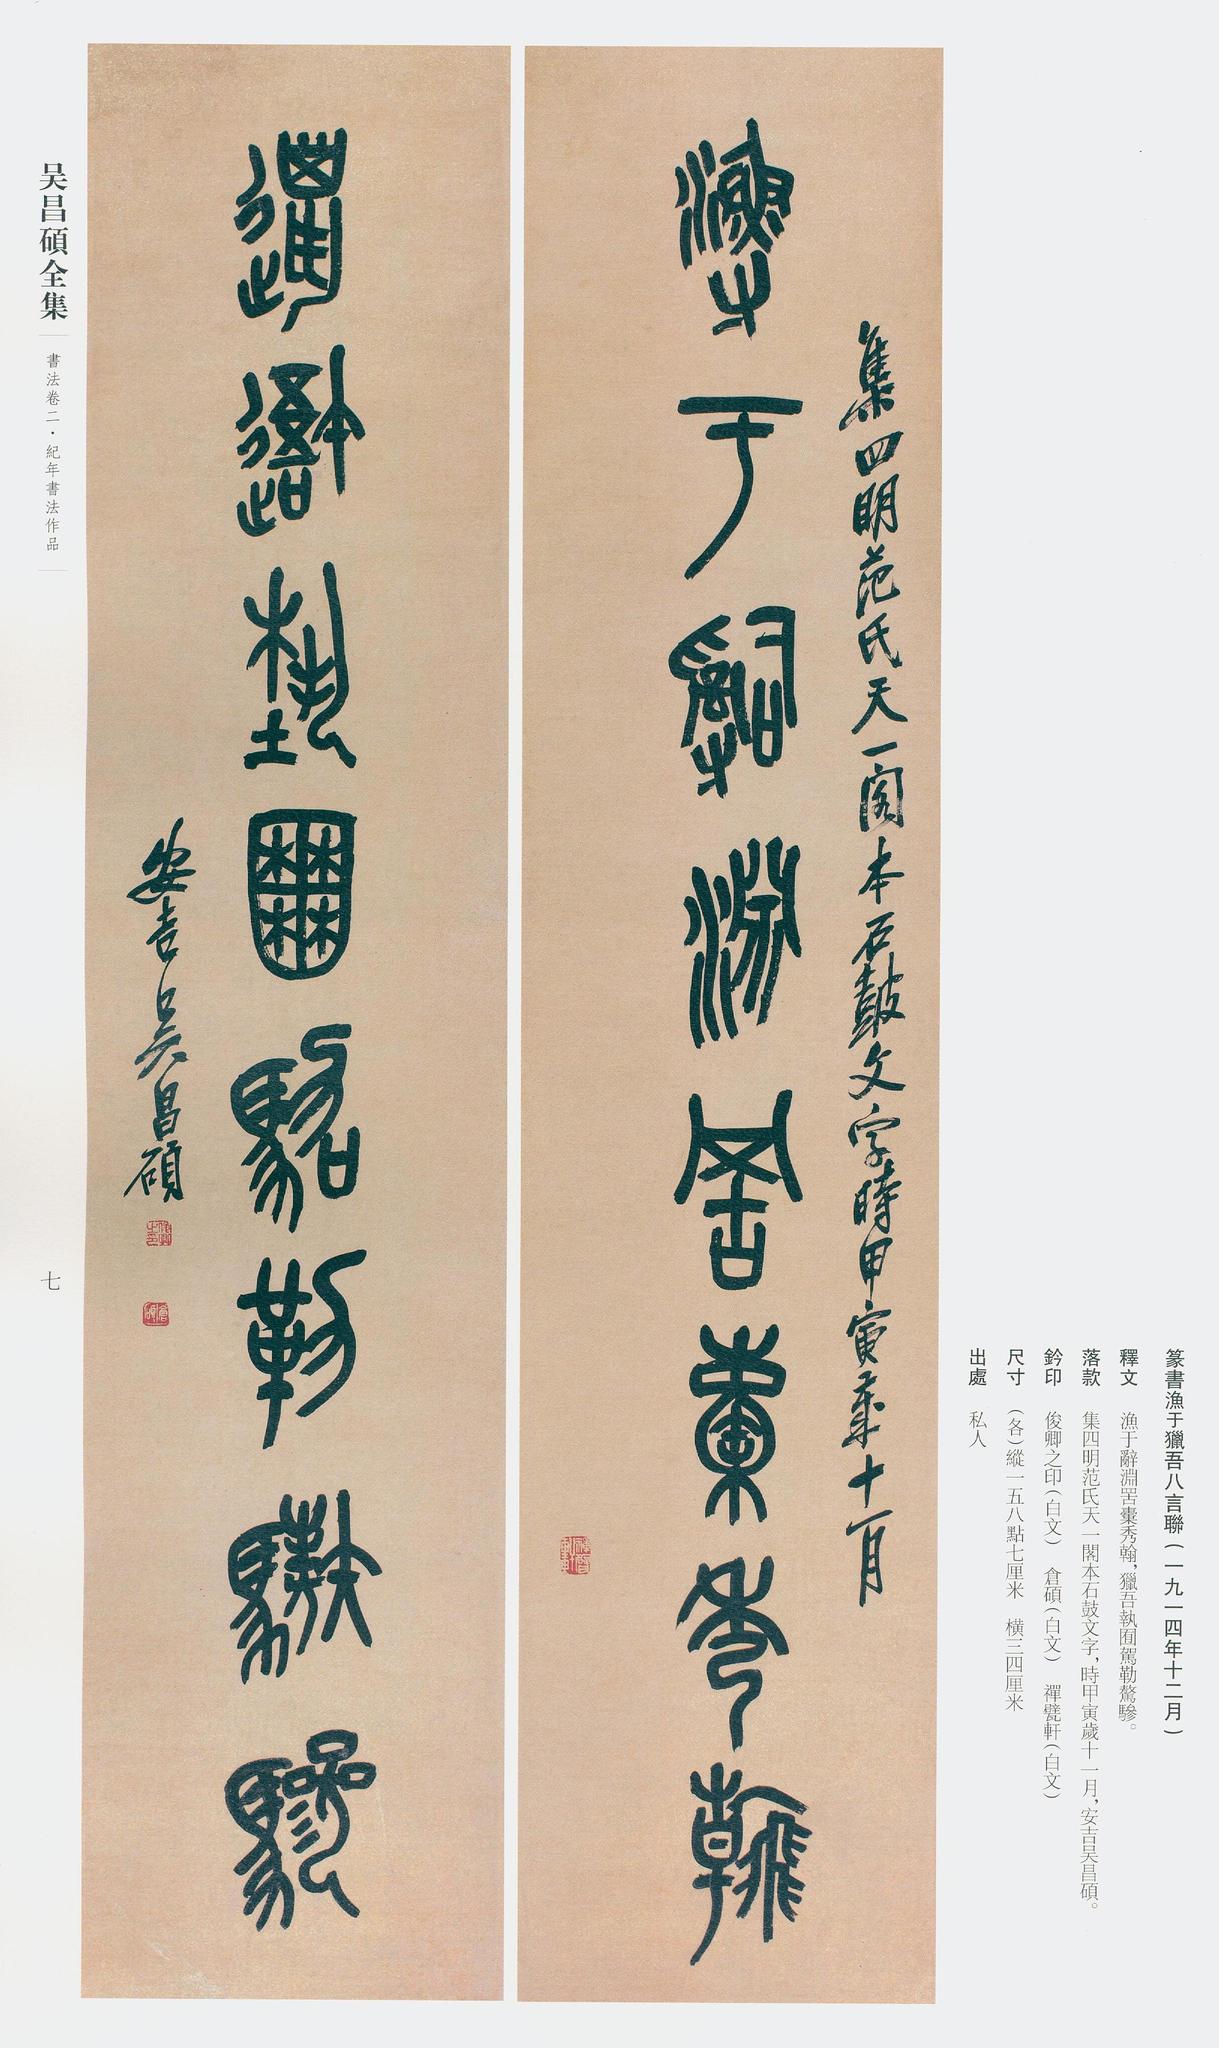 篆書漁于獵吾八言聯（一九一四年十二月）
釋文 漁于辭淵罟橐秀翰，獵吾執囿駕勒驁驂。
落款 集四明范氏天一閣本石鼓文字，時甲寅歲十一月，安吉吴昌碩。
鈐印 俊卿之印（白文） 倉碩（白文） 禪甓軒（白文）
尺寸 （各）縱一五八點七厘米 横三四厘米
出處 私人
集四明范氏天一閣本石鼓文字時甲寅歲十一月
漁于辭淵罟橐秀翰
獵吾執囿駕勒驁驂
安吉吴昌碩
吴昌碩全集
書法卷二·紀年書法作品
七